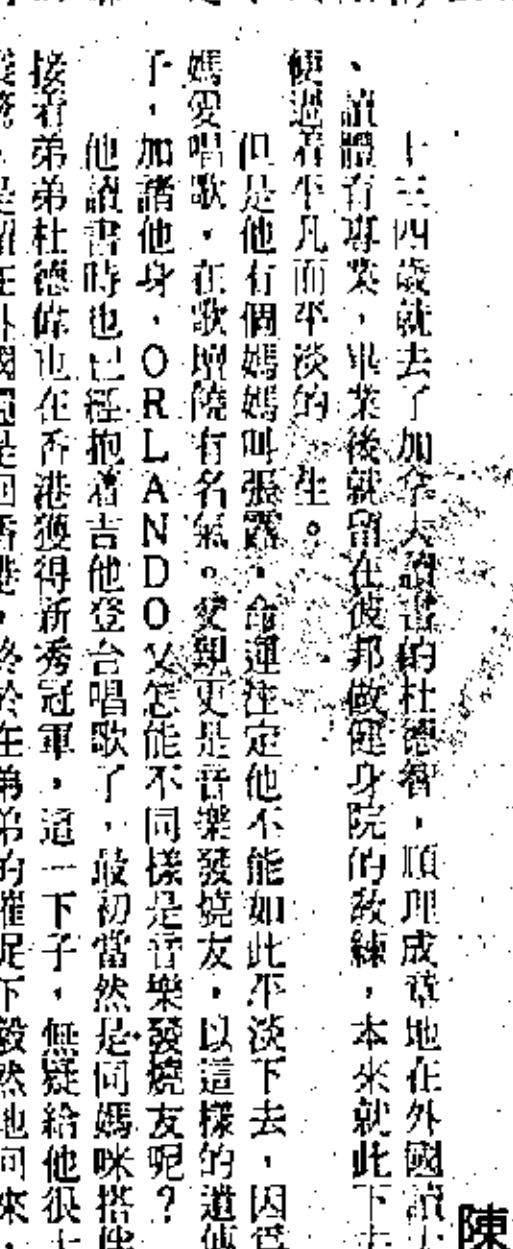 陳
十三四歲就去了加拿大讀書的杜德智，順理成章地在外國讀
、讀體育專業，畢業後就留在彼邦做健身院的教練，本來就此下去
便過着平凡而平淡的一生。
但是他有個媽媽叫張露，命運注定他不能如此平淡下去，因爲
媽愛唱歌，在歌壇饒有名氣。父親更是音樂發燒友，以這樣的遺傳
子，加諸他身，ORLANDO又怎能不同樣是音樂發燒友呢？
他讀書時也已經抱着吉他登台唱歌了，最初當然是同媽咪搭
接着弟弟杜德偉也在香港獲得新秀冠軍，這一下子，無疑給他很
是留在外國還是回香港，終於在弟弟的催促下毅然地回來，